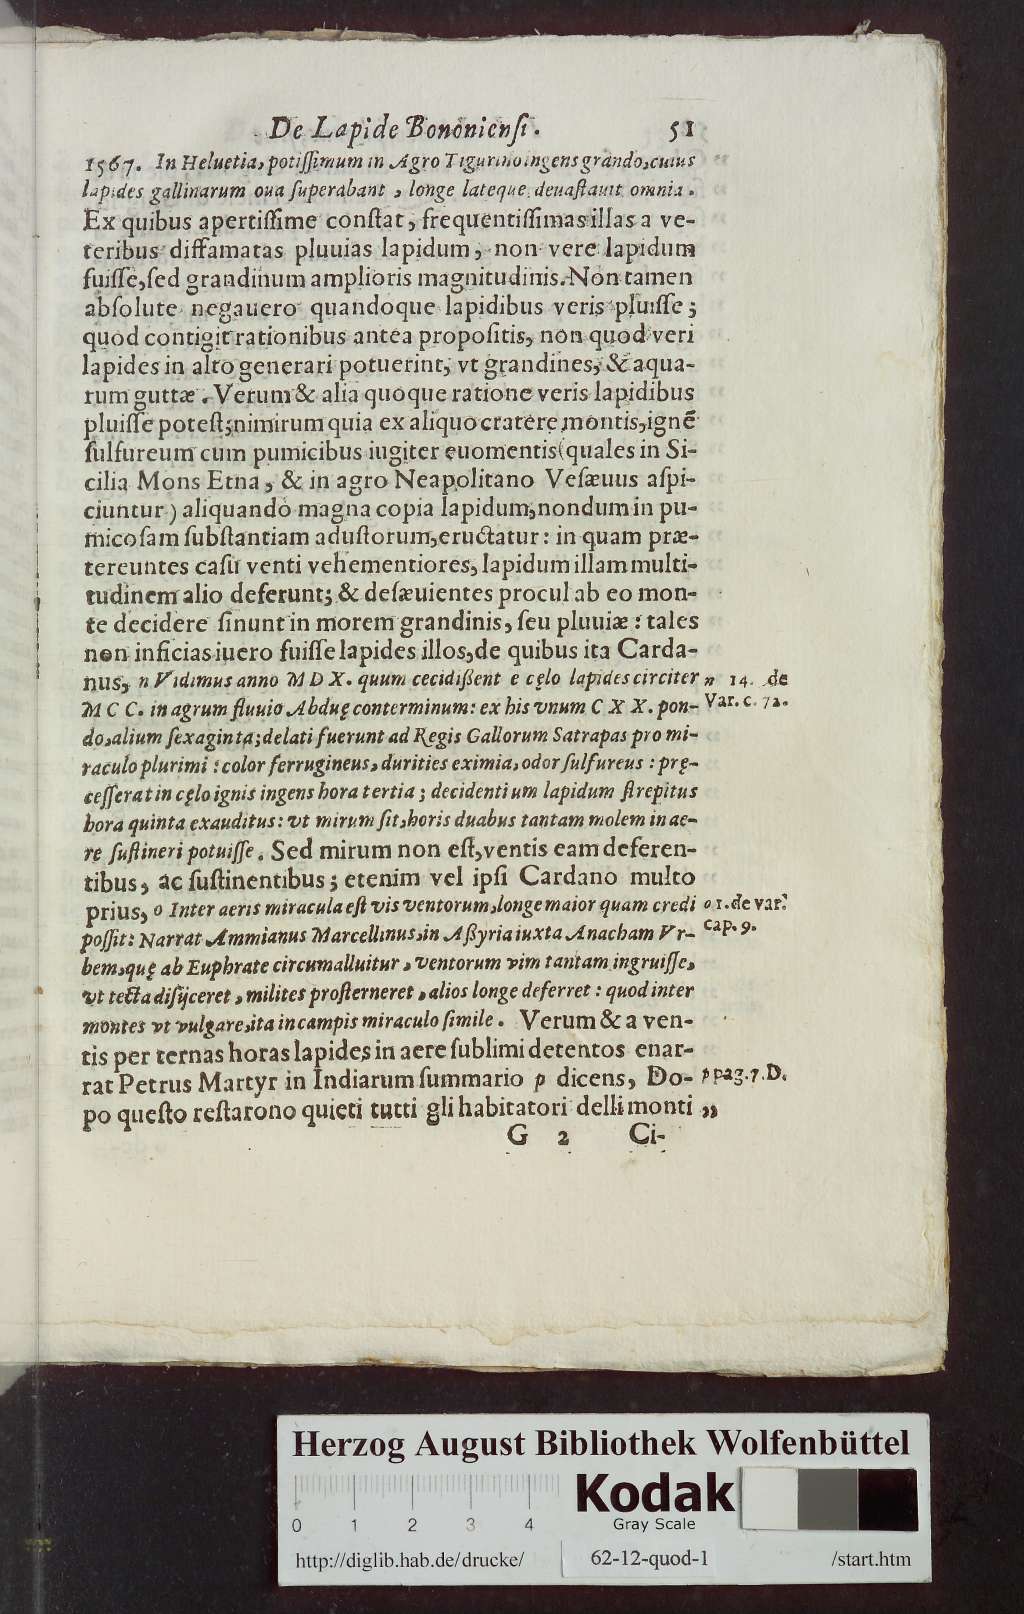 De Lapide Bononienſi. 51
1567. In Heluetia, potiſſimum in Agro Tigurino ingens grando, cuius
lapides gallinarum oua ſuperabant, longe lateque deuaſtauit omnia.
Ex quibus apertiſſime conſtat, frequentiſſimas illas a ve-
teribus diffamatas pluuias lapidum, non vere lapidum
fuiſſe, ſed grandinum amplioris magnitudinis. Non tamen
abſolute negauero quandoque lapidibus veris pluiſſe;
quod contigit rationibus antea propoſitis, non quod veri
lapides in alto generari potuerint, vt grandines, & aqua-
rum guttæ. Verum & alia quoque ratione veris lapidibus
pluiſſe poteſt; nimirum quia ex aliquo cratere montis, ignẽ
ſulfureum cum pumicibus iugiter euomentis (quales in Si-
cilia Mons Etna, & in agro Neapolitano Veſæuus aſpi-
ciuntur) aliquando magna copia lapidum, nondum in pu-
micoſam ſubſtantiam aduſtorum, eructatur: in quam præ-
tereuntes caſu venti vehementiores, lapidum illam multi-
tudinem alio deferunt; & deſæuientes procul ab eo mon-
te decidere ſinunt in morem grandinis, ſeu pluuiæ: tales
non inficias iuero fuiſſe lapides illos, de quibus ita Carda-
nus, n Vidimus anno MDX. quum cecidißent e cęlo lapides circiter n 14. de
MCC. in agrum fluuio Abduę conterminum: ex his vnum CXX. pon- Var. c. 72.
do, alium ſexaginta; delati fuerunt ad Regis Gallorum Satrapas pro mi-
raculo plurimi: color ferrugineus, durities eximia, odor ſulfureus: prę-
ceſſerat in cęlo ignis ingens hora tertia; decidentium lapidum ſtrepitus
hora quinta exauditus: vt mirum ſit, horis duabus tantam molem in ae-
re ſuſtineri potuiſſe. Sed mirum non eſt, ventis eam deferen-
tibus, ac ſuſtinentibus; etenim vel ipſi Cardano multo
prius, o Inter aeris miracula eſt vis ventorum, longe maior quam credi o 1. de var.
poſſit: Narrat Ammianus Marcellinus, in Aßyria iuxta Anacham Vr- cap. 9.
bem, quę ab Euphrate circumalluitur, ventorum vim tantam ingruiſſe,
vt tecta diſijceret, milites proſterneret, alios longe deferret: quod inter
montes vt vulgare, ita in campis miraculo ſimile. Verum & a ven-
tis per ternas horas lapides in aere ſublimi detentos enar-
rat Petrus Martyr in Indiarum ſummario p dicens, Do- p pag. 7. D.
po queſto reſtarono quieti tutti gli habitatori delli monti „
G 2 Ci-
Herzog August Bibliothek Wolfenbüttel
Kodak
Gray Scale
0 1 2 3 4
http://diglib.hab.de/drucke/ 62-12-quod-1 /start.htm